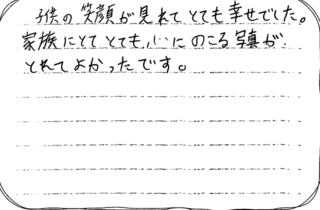 子供の笑顔が見れてとても幸せでした。
家族にとてとても心にのこる写真が
とれてよかったです。